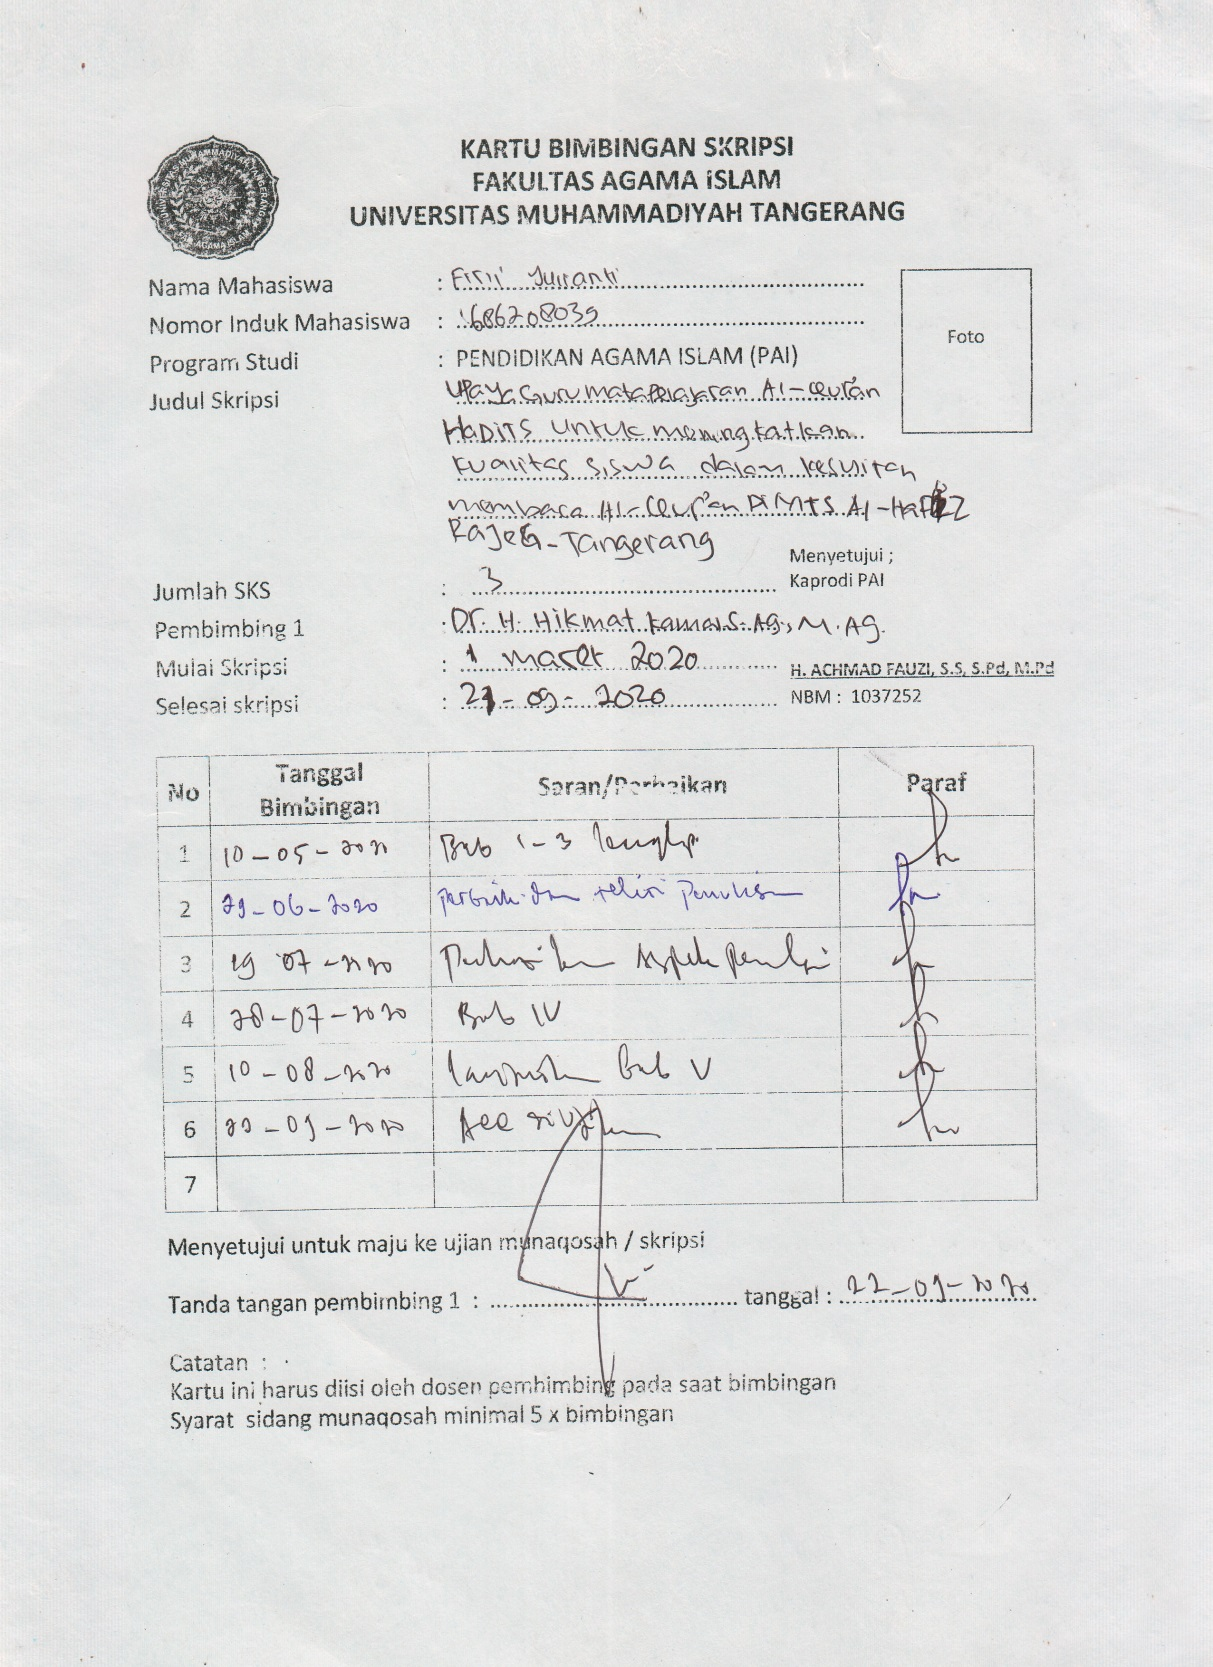 KARTU BIMBINGAN SKRIPSI
FAKULTAS AGAMA ISLAM
UNIVERSITAS MUHAMMADIYAH TANGERANG
Nama Mahasiswa :
Nomor Induk Mahasiswa : 1686208039
Program Studi : PENDIDIKAN AGAMA ISLAM (PAI)
Judul Skripsi Upaya Guru mata Pelajaran Al-Qur'an
HADITS UNTUK meningkatkan
kualitas siswa dalam kesulitan
membaca Al-Qur'an Di MTS Al-Hafidz
RAJEG-Tangerang
Foto
Menyetujui ;
Kaprodi PAI
Jumlah SKS : 3
Pembimbing 1 : Dr. H. Hikmat S.Ag., M.Ag.
Mulai Skripsi : 1 maret 2020
H. ACHMAD FAUZI, S.S, S.Pd, M.Pd
Selesai skripsi : 21-09-2020
NBM : 1037252
No Tanggal Bimbingan Saran/Perbaikan Paraf
1 10-05-2020 Bab 1-3 lengkap
2 29-06-2020
3 19 07-2020
4 28-07-2020 Bab IV
5 10-08-2020 Bab V
6 22-09-2020 Acc
7
Menyetujui untuk maju ke ujian munaqosah / skripsi
Tanda tangan pembimbing 1 : tanggal : 22-09-2020
Catatan :
Kartu ini harus diisi oleh dosen pembimbing pada saat bimbingan
Syarat sidang munaqosah minimal 5 x bimbingan